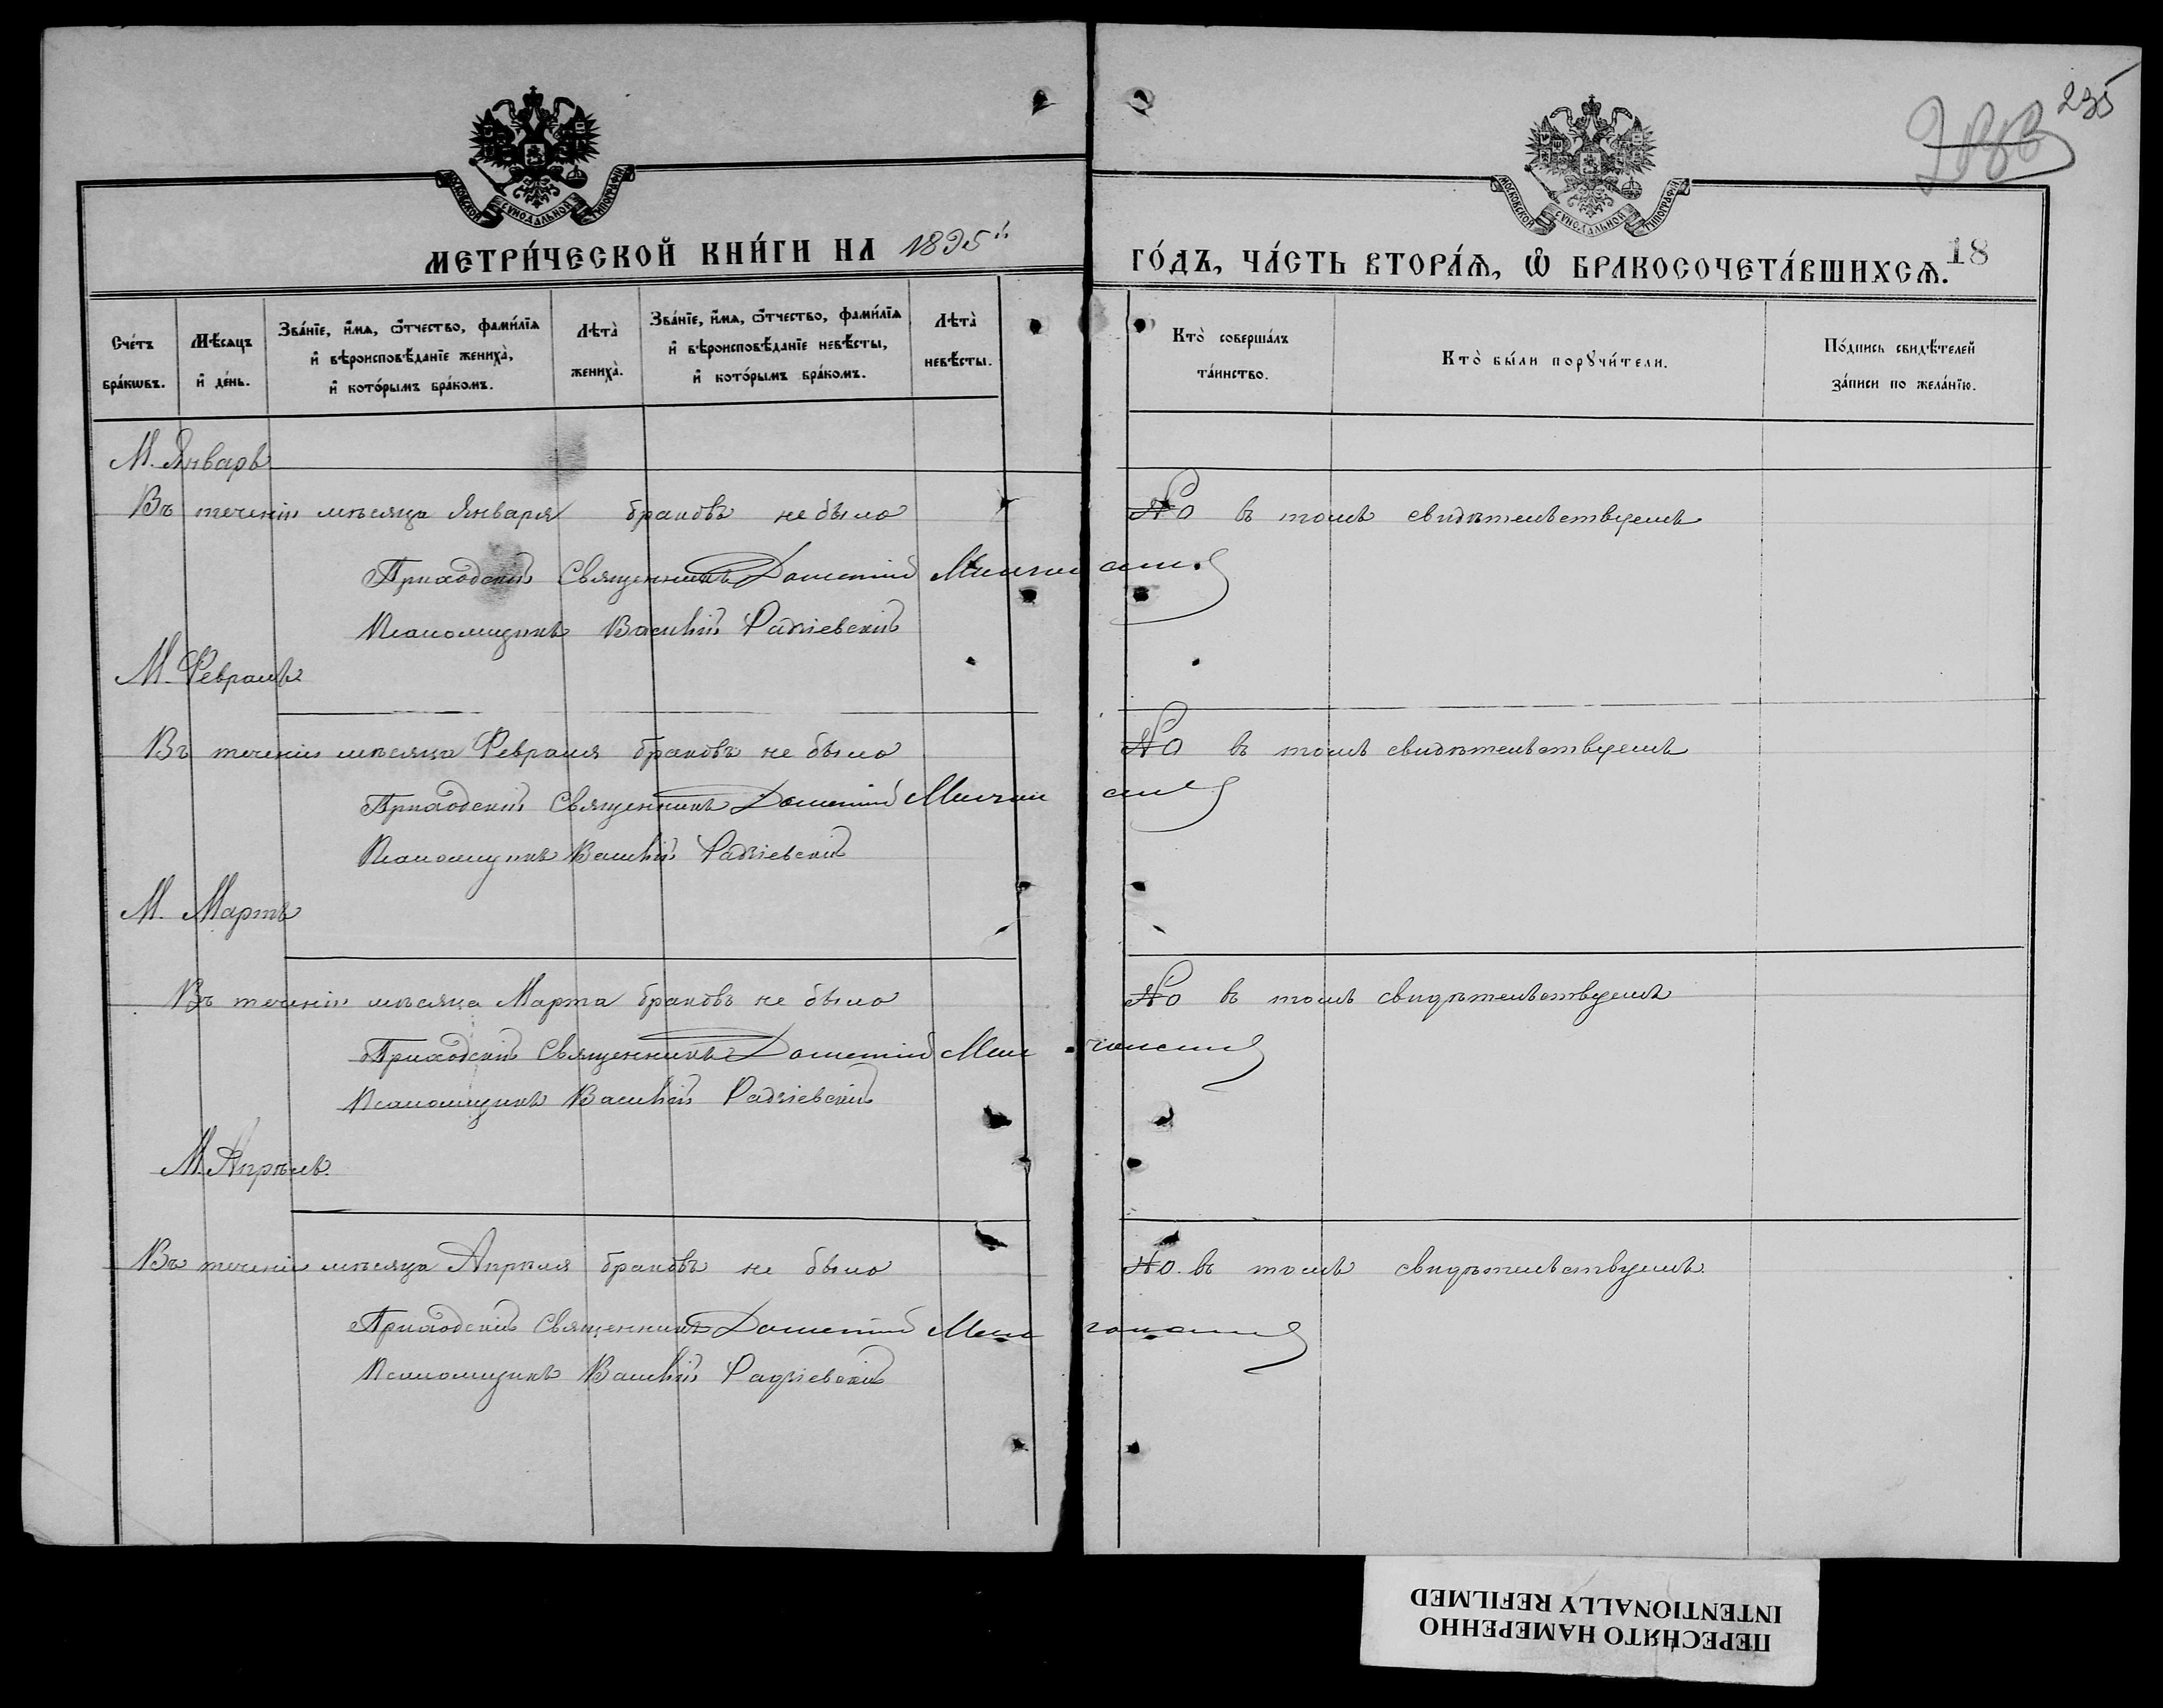 235
МОСКОВСКОЙ СУНОДАЛЬНОЙ ТИПОГРАФІИ
МОСКОВСКОЙ СУНОДАЛЬНОЙ ТИПОГРАФІИ
МЕТРИ́ЧЕСКОЙ КНИ́ГИ НА 1895й ГО́ДЪ, ЧА́СТЬ ВТОРА́Ѧ, Ѽ БРАКОСОЧЕТА́ВШИХСѦ. 18
Сче́тъ бра́кѡвъ.
Мѣ́сѧцъ и҆ де́нь.
Зва́нїе, и҆́мѧ, ѻ҆́тчество, фами́лїѧ и҆ вѣроисповѣ́данїе жениха̀, и҆ кото́рымъ бра́комъ.
Лѣта̀ жениха̀.
Зва́нїе, и҆́мѧ, ѻ҆́тчество, фами́лїѧ и҆ вѣроисповѣ́данїе невѣ́сты, и҆ кото́рымъ бра́комъ.
Лѣта̀ невѣ́сты.
Кто̀ соверша́лъ та́инство.
Кто̀ бы́ли порꙋчи́тели.
По́дпись свидѣ́телей за́писи по жела́нїю.
М. Январь
Въ теченіи мѣсяца Января браковъ не было № 0 въ томъ свидѣтельствуемъ
Приходскій Священникъ Дометій
Псаломщикъ Василій Радзіевскій
М. Февраль
Въ теченіи мѣсяца Февраля браковъ не было № 0 въ томъ свидѣтельствуемъ
Приходскій Священникъ Дометій
Псаломщикъ Василій Радзіевскій
М. Мартъ
Въ теченіи мѣсяца Марта браковъ не было № 0 въ томъ свидѣтельствуемъ
Приходскій Священникъ Дометій
Псаломщикъ Василій Радзіевскій
М. Апрѣль.
Въ теченіи мѣсяца Апрѣля браковъ не было № 0. въ томъ свидѣтельствуемъ.
Приходскій Священникъ Дометій
Псаломщикъ Василій Радзіевскій
ПЕРЕСНЯТО НАМЕРЕННО
INTENTIONALLY REFILMED